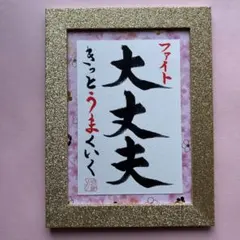 ファイト
大丈夫
きっとうまくいく